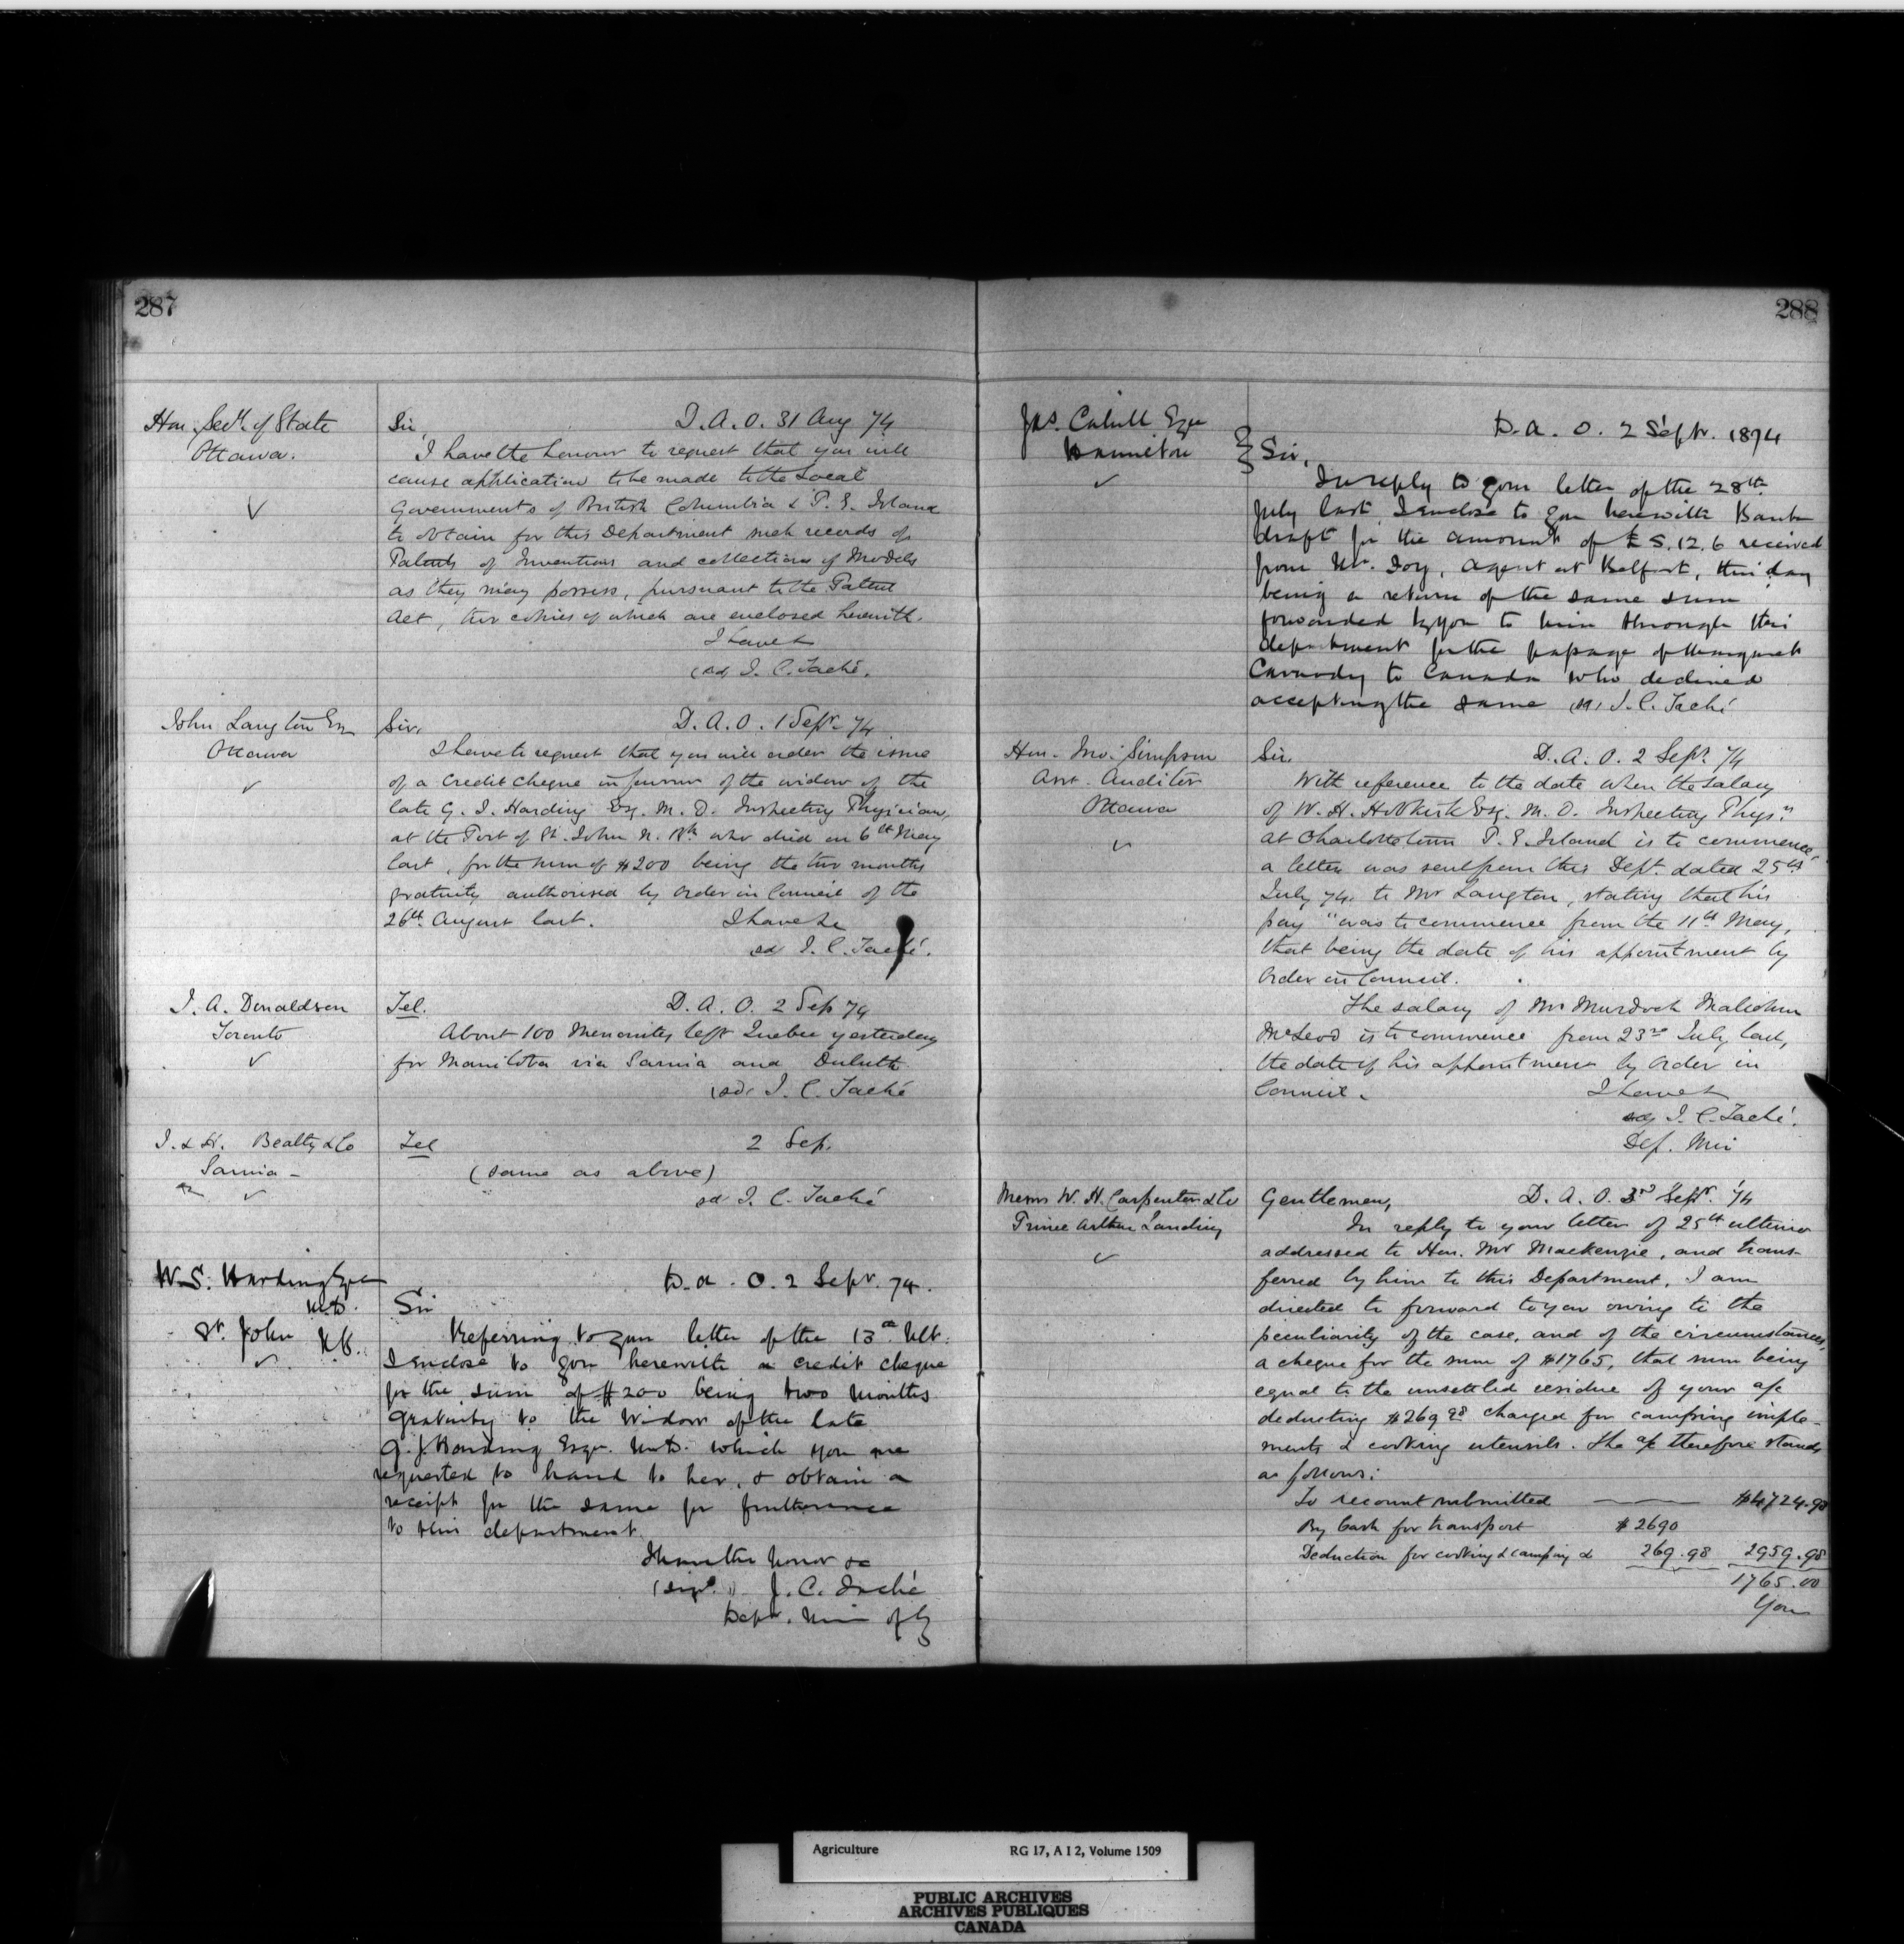 287
Hon. Secy. of State
Ottawa.
Sir, D. A. O. 31 Aug 74
I have the honour to request that you will
cause application to be made to the Local
Governments of British Columbia & P. E. Island
to obtain for this Department such records of
Patents of Inventions and collections of Models
as they may possess, pursuant to the Patent
Act, two copies of which are enclosed herewith.
I have &
(sd) J. C. Taché.
John Langton Esq
Ottawa
Sir, D. A. O. 1 Sept. 74
I have to request that you will order the issue
of a credit cheque in favour of the widow of the
late G. J. Harding Esq. M. D. Inspecting Physician,
at the Port of St. John N. Bk who died on 6th May
last, for the sum of $200 being the two months
gratuity authorised by Order in Council of the
26th August last. I have &c
sd J. C. Taché.
J. A. Donaldson
Toronto
Tel. D. A. O. 2 Sep 74
About 100 Menonites left Quebec yesterday
for Manitoba via Sarnia and Duluth
(sd) J. C. Taché
J. & H. Beatty & Co
Sarnia -
Tel 2 Sep.
(same as above)
sd J. C. Taché
W. S. Harding Esqre
M.D.
St. John N.B.
D. A. O. 2 Sept. 74.
Sir
Referring to your letter of the 13th Ult.
I enclose to you herewith a credit cheque
for the sum of $200 being two months
gratuity to the Widow of the late
G. J. Harding Esqr. M.D. which you are
requested to hand to her, & obtain a
receipt for the same for furtherance
to this department.
I have the honor &c
(signd.) J. C. Taché
Dept. Min of Ag
288
Jas. Cahill Esqre
Hamilton
D. A. O. 2 Sept. 1874
Sir,
In reply to your letter of the 28th
July last, I enclose to you herewith Bank
draft for the amount of £5.12.6 received
from Mr. Foy, Agent at Belfast, this day
being a return of the same sum
forwarded by you to him through this
department for the passage of Margaret
to Canada who declined
accepting the same (sd) J. C. Taché
Hon. Jno. Simpson
Asst. Auditor
Ottawa
Sir, D. A. O. 2 Sept. 74
With reference to the date when the salary
of W. H. Hobkirk Esq. M. D. Inspecting Physn
at Charlottetown P. E. Island is to commence,
a letter was sent from this Dept. dated 25th
July 74 to Mr Langton, stating that his
pay "was to commence from the 11th May,
that being the date of his appointment by
Order in Council.
The salary of Mr Murdoch
McLeod is to commence from 23rd July last,
the date of his appointment by Order in
Council. I have &
sd J. C. Taché.
Dep. Min
Messrs W. H. Carpenter & Co
Prince Arthur Landing
Gentlemen, D. A. O. 3rd Sept. 74
In reply to your letter of 25th ultimo
addressed to Hon. Mr Mackenzie, and trans-
ferred by him to this Department, I am
directed to forward to you owing to the
peculiarity of the case, and of the circumstances,
a cheque for the sum of $1765, that sum being
equal to the unsettled residue of your a/c
deducting $269 98 charged for camping imple-
ments & cooking utensils. The a/c therefore stands
as follows:
To account submitted $4724.98
By Cash for transport $2690
Deduction for cooking & camping & 269.98 2959.98
1765.00
You
Agriculture RG 17, A I 2, Volume 1509
PUBLIC ARCHIVES
ARCHIVES PUBLIQUES
CANADA